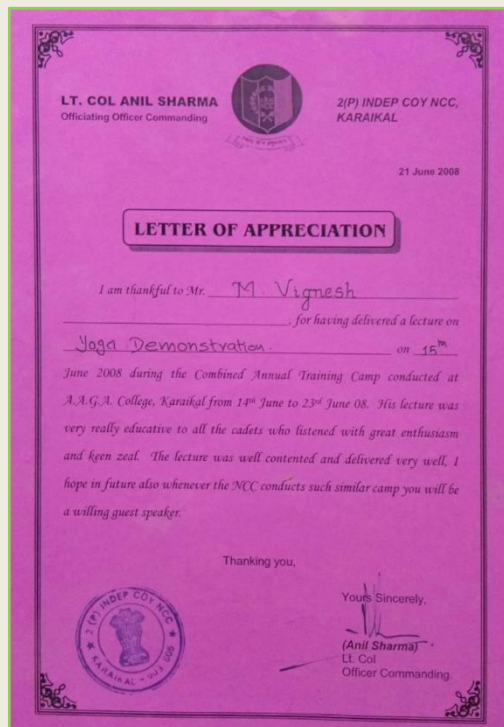 LT. COL ANIL SHARMA
Officiating Officer Commanding
2(P) INDEP COY NCC,
KARAIKAL
21 June 2008
LETTER OF APPRECIATION
I am thankful to Mr. M. Vignesh
, for having delivered a lecture on
Yoga Demonstration. on 15th
June 2008 during the Combined Annual Training Camp conducted at
A.A.G.A. College, Karaikal from 14th June to 23rd June 08. His lecture was
very really educative to all the cadets who listened with great enthusiasm
and keen zeal. The lecture was well contented and delivered very well, I
hope in future also whenever the NCC conducts such similar camp you will be
a willing guest speaker.
Thanking you,
Yours Sincerely,
(Anil Sharma)
Lt. Col
Officer Commanding.
2 (P) INDEP COY NCC
KARAIKAL